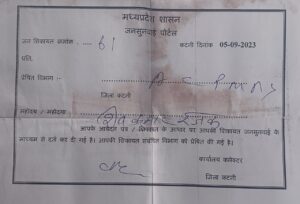 मध्यप्रदेश शासन
जनसुनवाई पोर्टल
जन शिकायत क्रमांक :- 61 कटनी दिनांक 05-09-2023
प्रति,
प्रेषित विभाग :-
जिला कटनी
महोदय / महोदया शिव कुमार रजक
आपके आवेदन पत्र / शिकायत के आधार पर आपकी शिकायत जनसुनवाई के
माध्यम से दर्ज कर दी गई है। आपकी शिकायत संबंधित विभाग को प्रेषित की गई है।
कार्यालय कलेक्टर
जिला कटनी